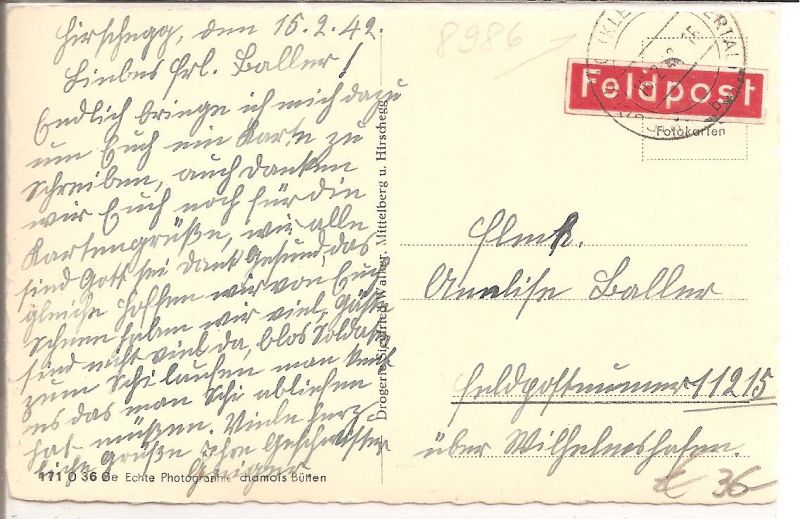 Hirschegg, den 15.2.42.
Liebes Frl. Baller!
Endlich bringe ich mich dazu
um Euch ein Karte zu
schreiben, auch danken
wir Euch noch für die
Kartengrüße, wir alle
sind Gott sei dank Gesund, das
gleiche hoffen wir von Euch
Schnee haben wir viel, Gäste
sind nicht viel da, blos Soldaten
zum Schilaufen man
es das man Schi abliefern
hat müßen. Viele herz
liche Grüße Ihre Geschwister
Geiger
171 O 36 Ge Echte Photographie chamois Bütten
Drogerie Siegfried Walker, Mittelberg u. Hirschegg
8986
Feldpost
Fotokarten
Annelise Baller
Feldpostnummer 11215
über Wilhelmshafen.
€ 36